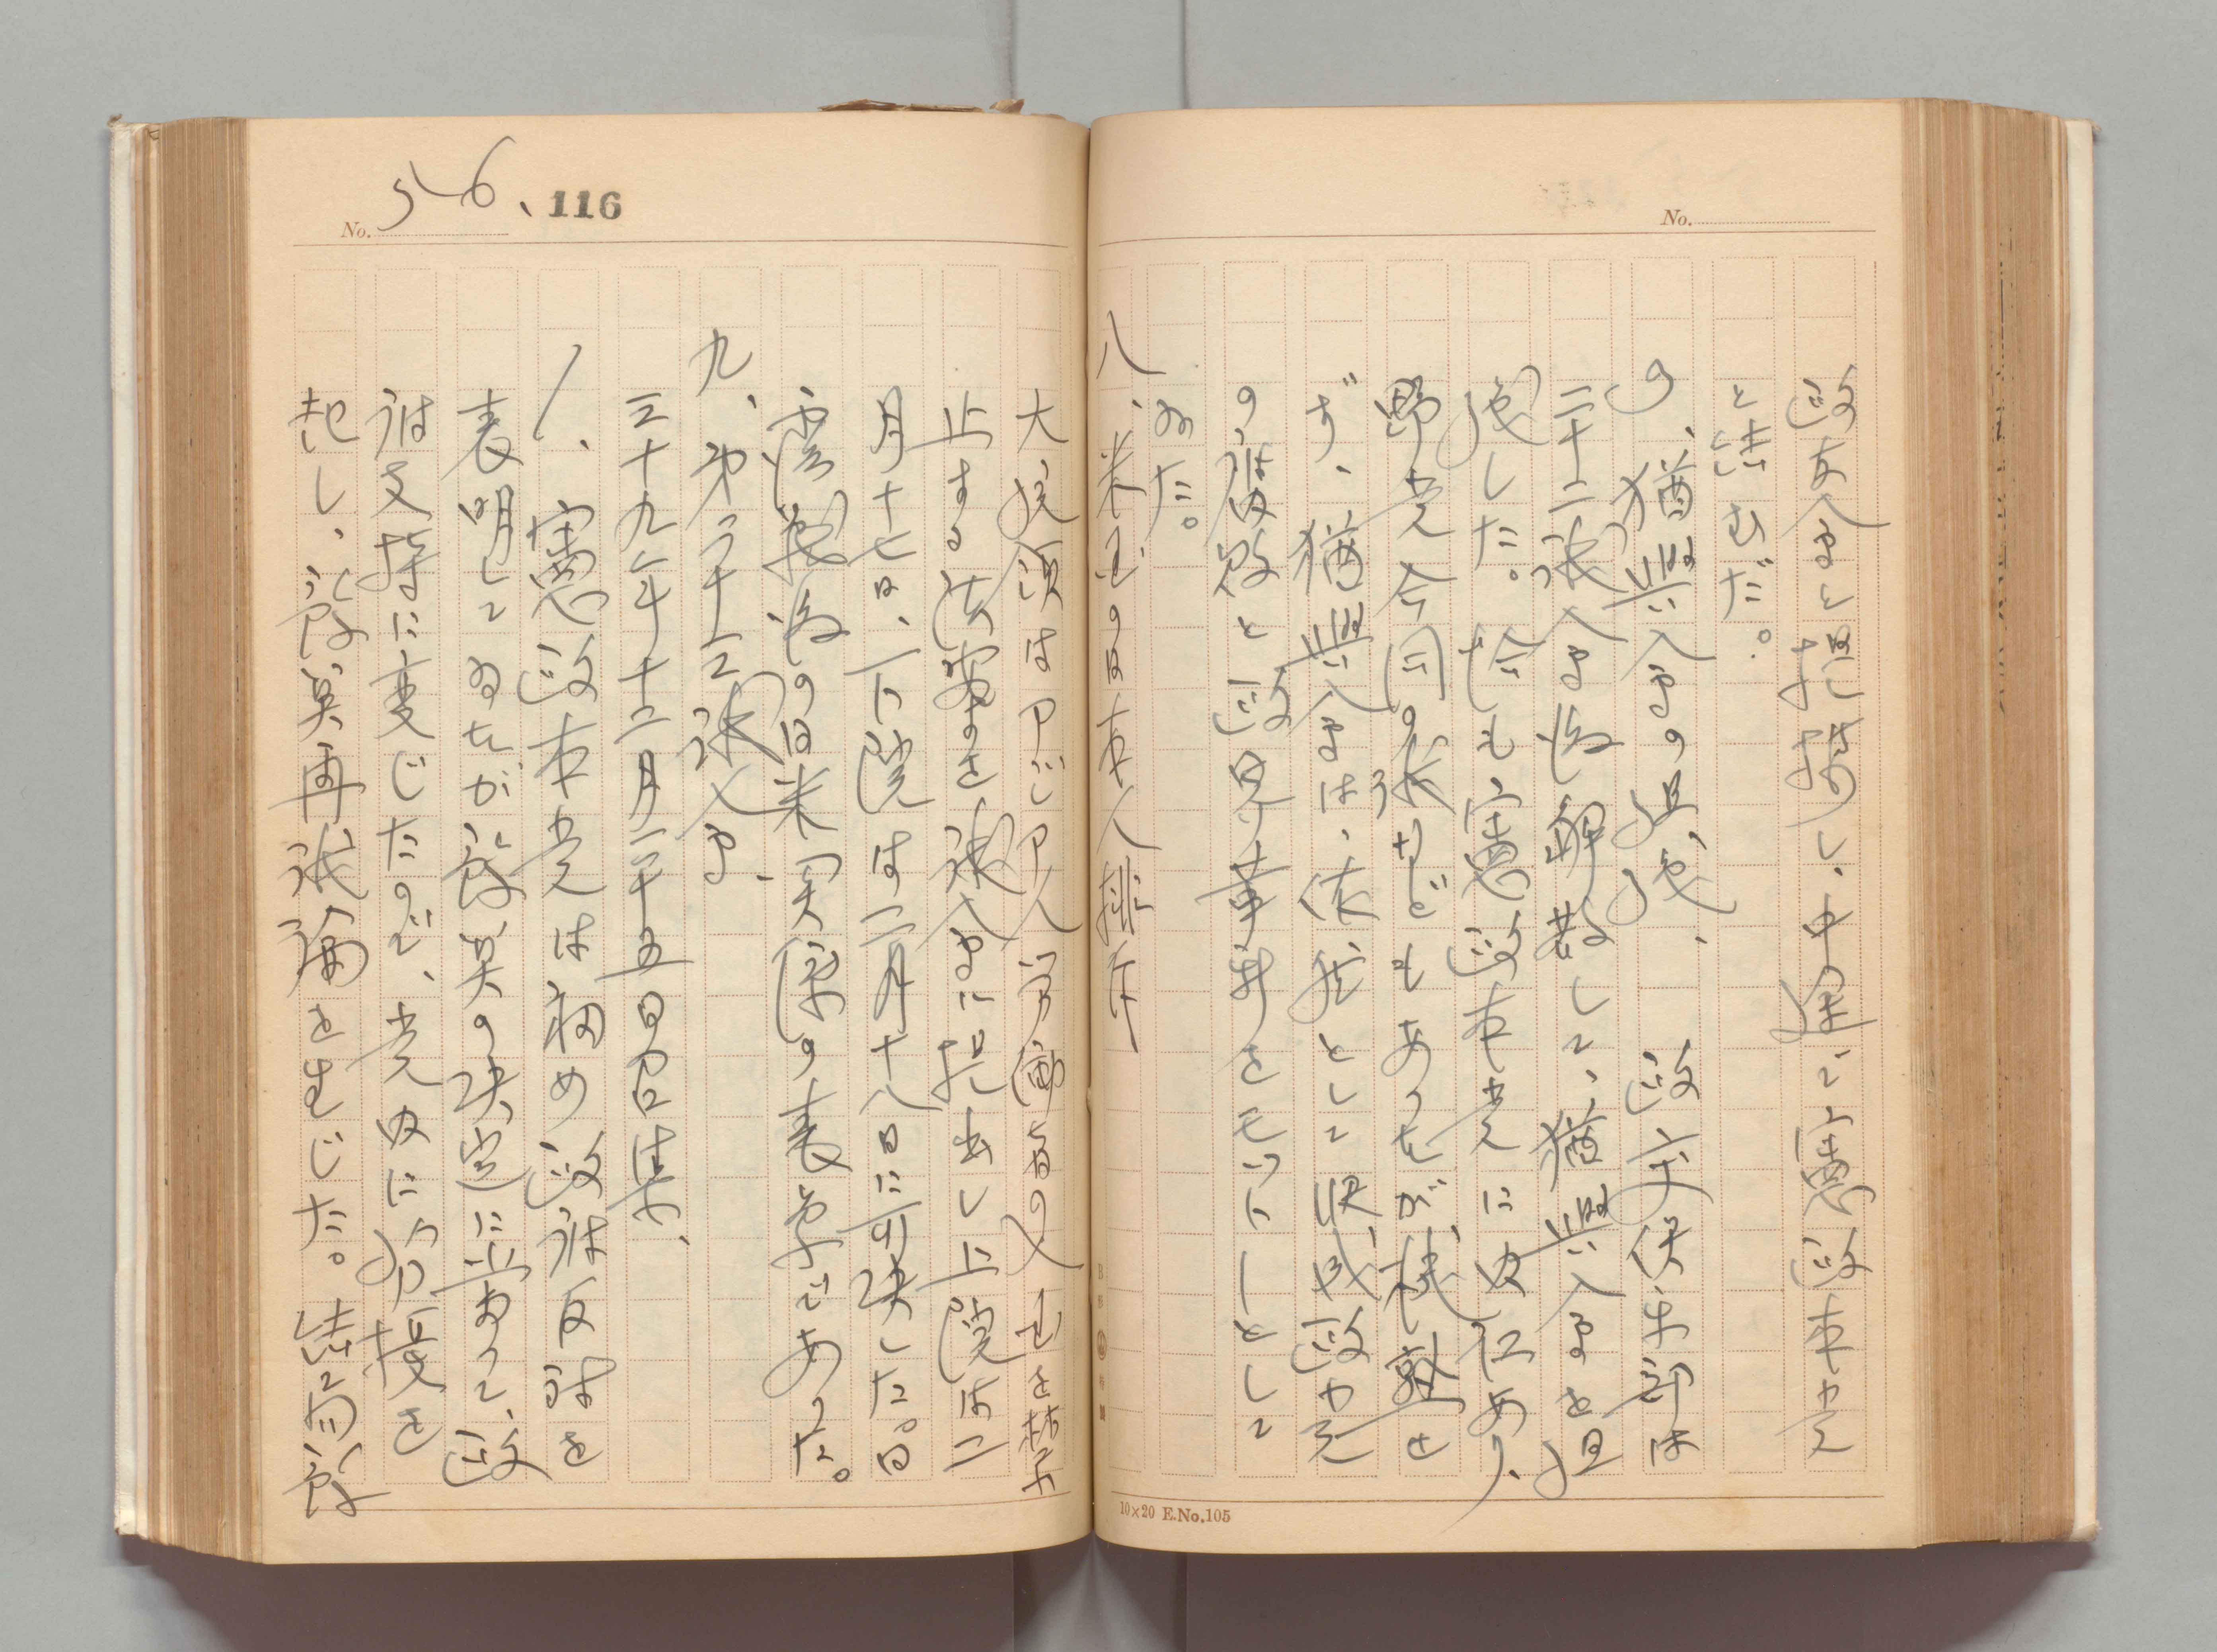 No.
政友会と提携し、中途で憲政本党
と結むだ。
の、猶興会の組織、　政交倶楽部は
二十二議会後解散して、猶興会を組
織した。恰も憲政本党に内訌あり、
野党合同の議などもあつたが、機熟せ
ず、猶興会は、依然として既成政党
の腐敗と政界革新をモットーとして
ゐた。
八、米国の日本人排斥
10×20 E.No.105
No. 116
大統領はアジア人労働者の入国を禁
止する法案を議会に提出し上院は二
月十七日、下院は二月十八日に可決した。日
露戦後の日米関係の であつた。
九、第二十三議会、
三十九年十二月二十五日召集、
1、憲政本党は初め政府反対を
表明してゐたが豫算の決定に当つて、政
府支持に変じたので、党内に紛擾を
起し、豫算再議論を生じた。結局豫